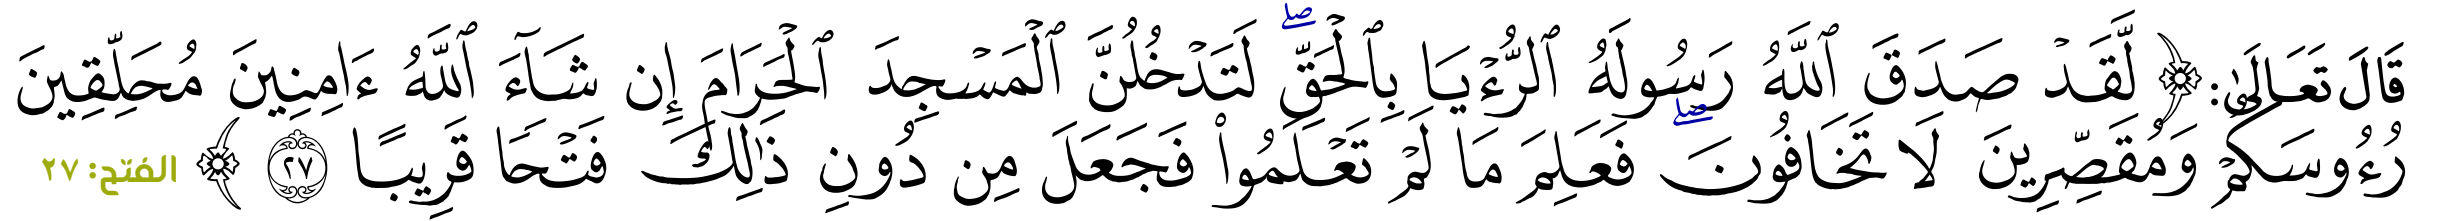 قَالَ تَعَالَىٰ: ﴿ لَّقَدۡ صَدَقَ ٱللَّهُ رَسُولَهُ ٱلرُّءۡيَا بِٱلۡحَقِّۖ لَتَدۡخُلُنَّ ٱلۡمَسۡجِدَ ٱلۡحَرَامَ إِن شَآءَ ٱللَّهُ ءَامِنِينَ مُحَلِّقِينَ
رُءُوسَكُمۡ وَمُقَصِّرِينَ لَا تَخَافُونَۖ فَعَلِمَ مَا لَمۡ تَعۡلَمُواْ فَجَعَلَ مِن دُونِ ذَٰلِكَ فَتۡحٗا قَرِيبًا ٢٧ ﴾ الفتح: ٢٧